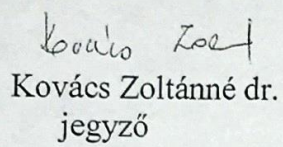 Kovács Zoltánné dr.
jegyző